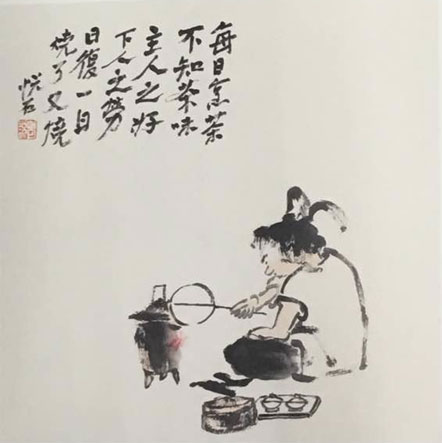 每日烹茶
不知茶味
主人之好
下人之勞
日復一日
燒了又燒